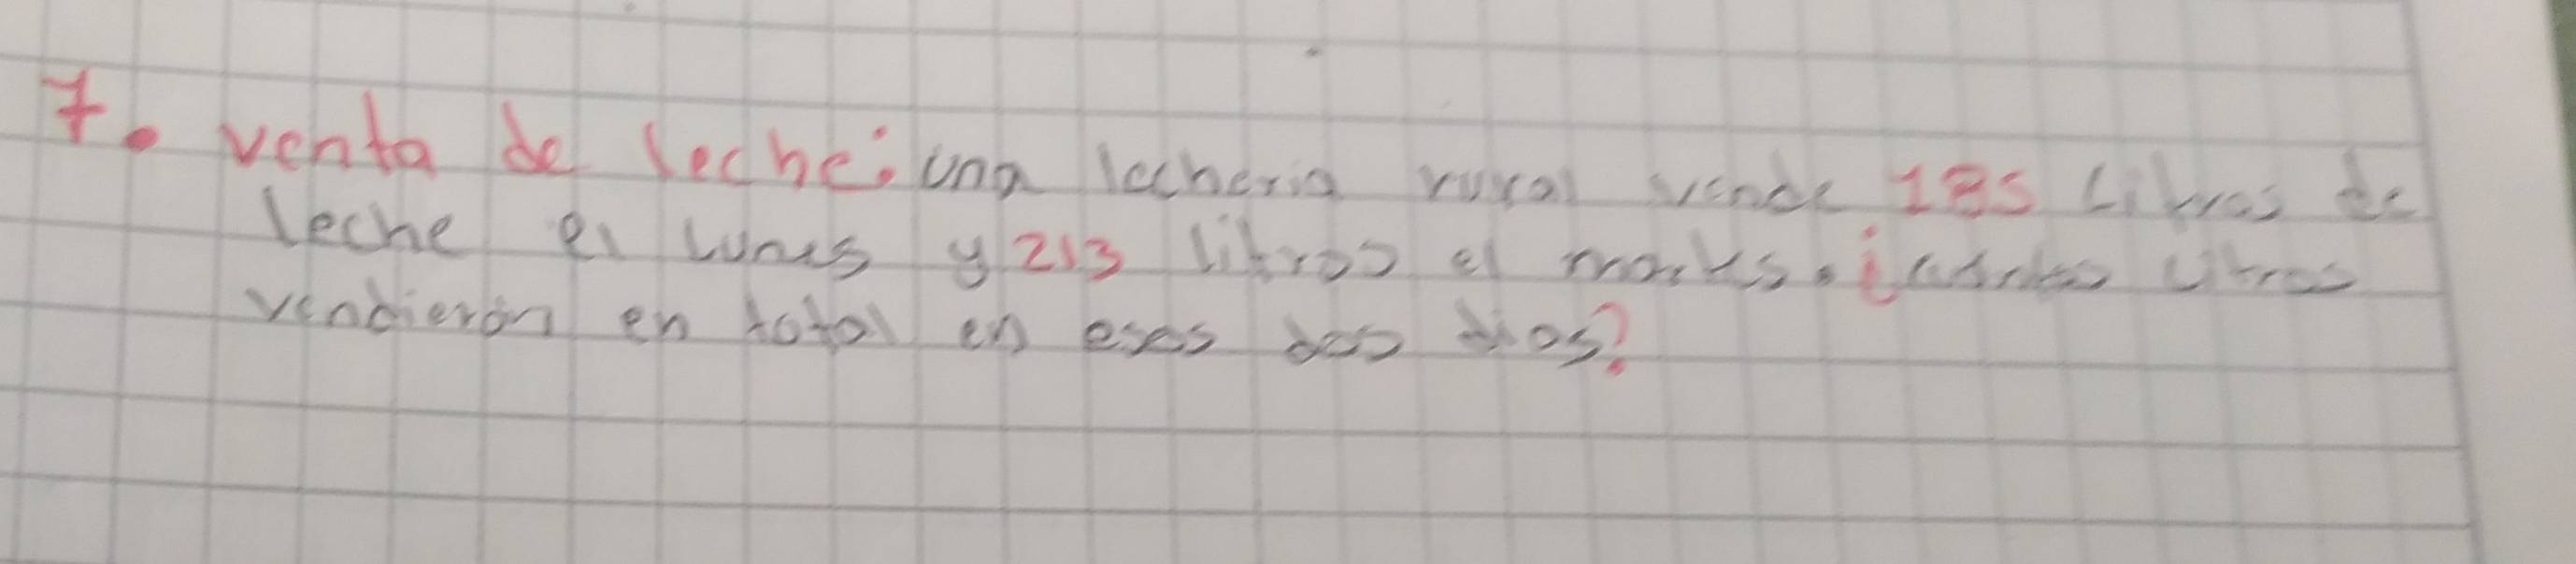 7. venta de leche: una lecheria rural vende 185 Litros de
leche el Lunes y 213 litros el martes. ¿cuántos Litros
vendierón en total en esos dos dias?